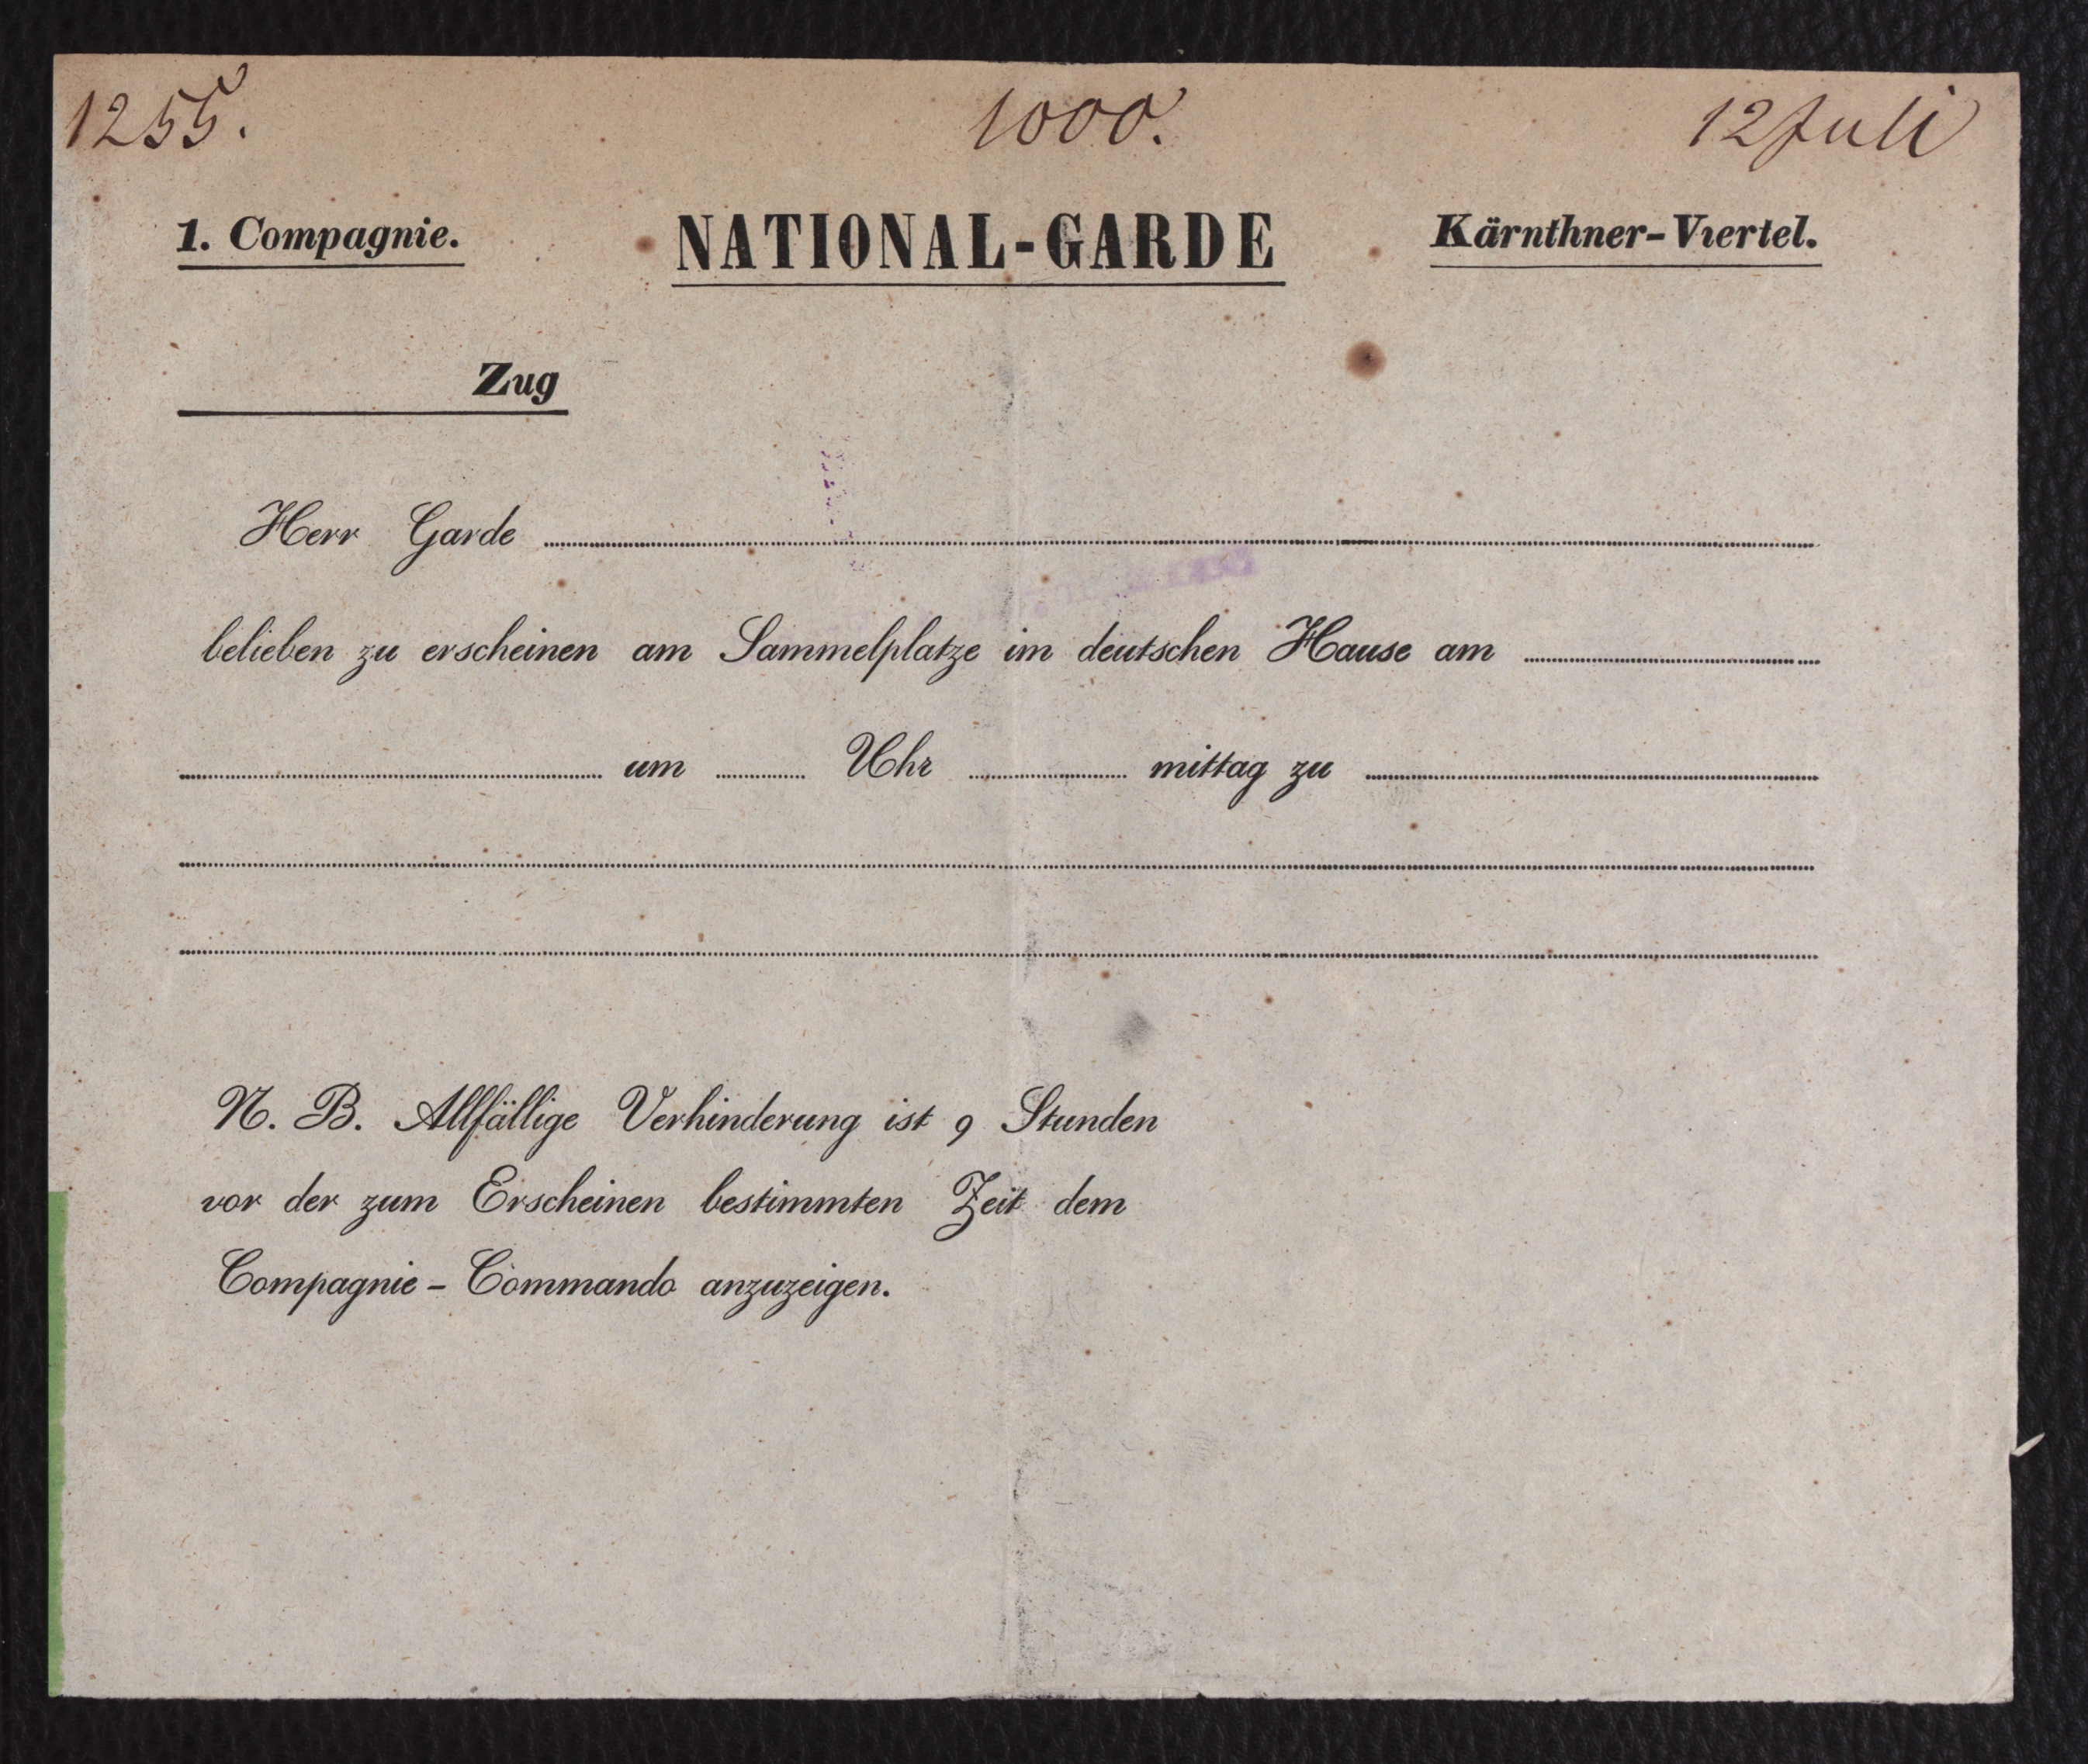 1255. 1000. 12 Juli
1. Compagnie. NATIONAL-GARDE Kärnthner-Viertel.
Zug
Herr Garde
belieben zu erscheinen am Sammelplatze im deutschen Hause am
um Uhr mittag zu
N. B. Allfällige Verhinderung ist 9 Stunden
vor der zum Erscheinen bestimmten Zeit dem
Compagnie-Commando anzuzeigen.